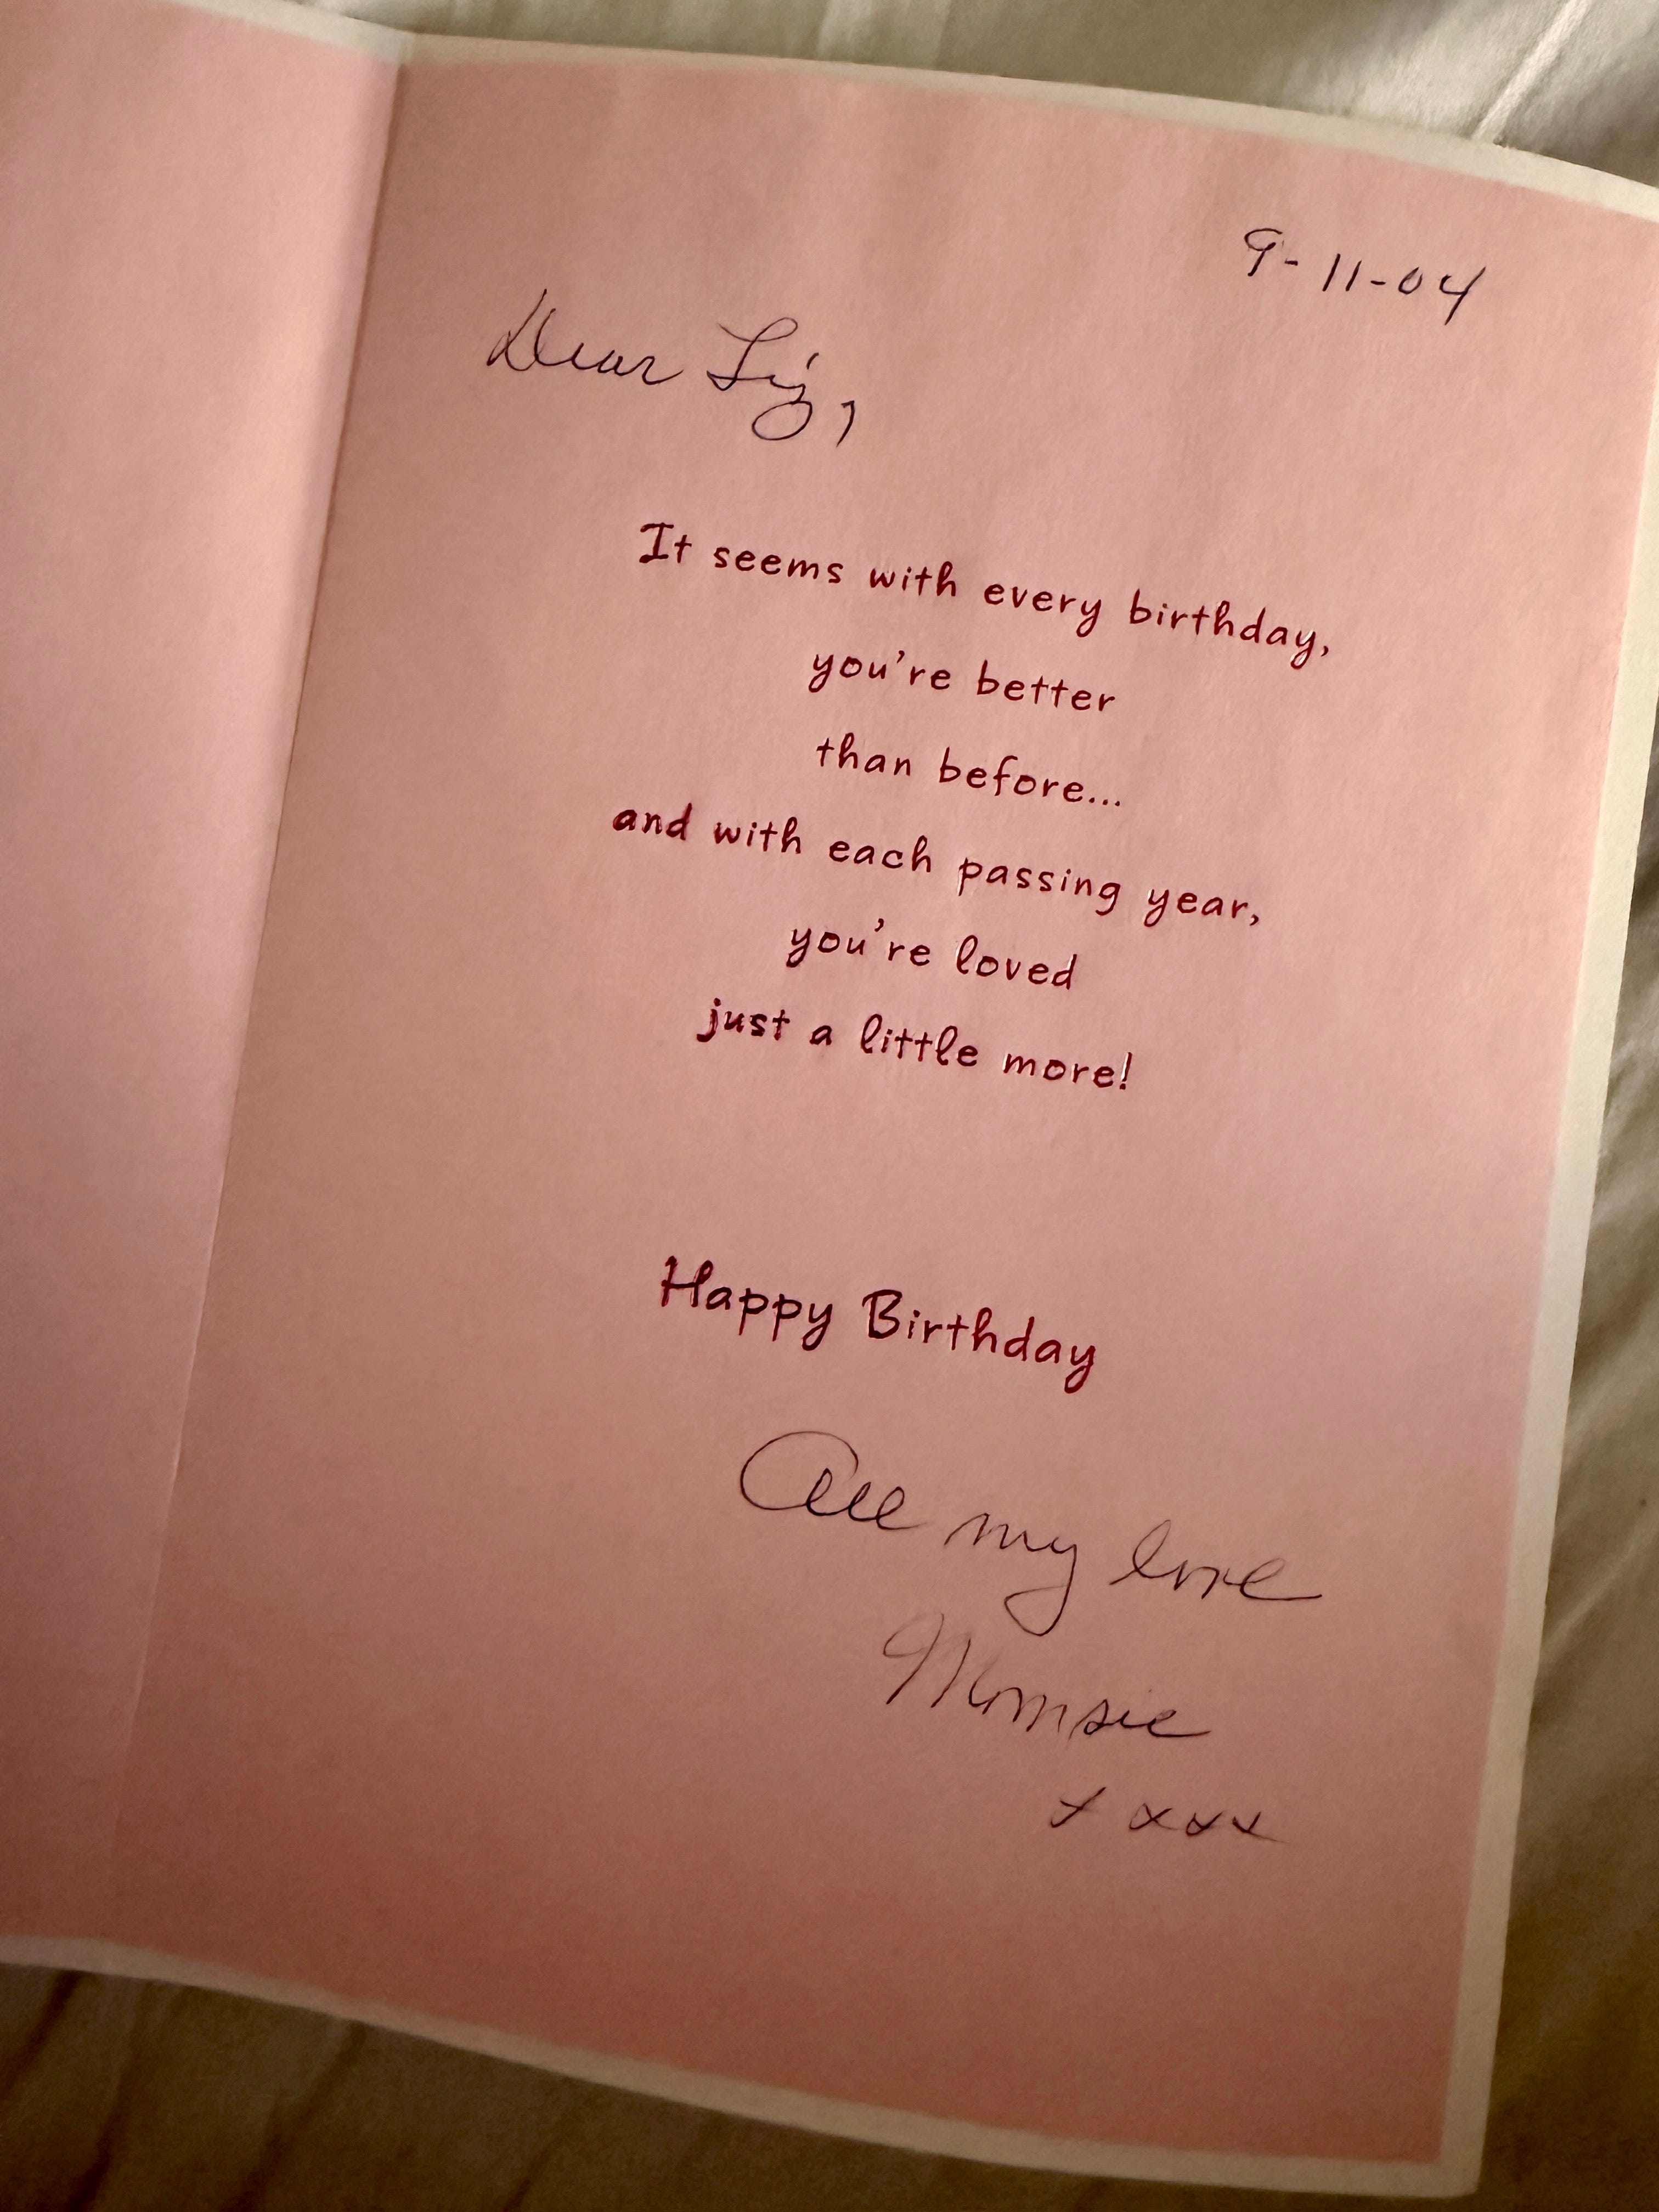 9-11-04
Dear Liz,
It seems with every birthday,
you're better
than before...
and with each passing year,
you're loved
just a little more!
Happy Birthday
All my love
Momsie
x xxx